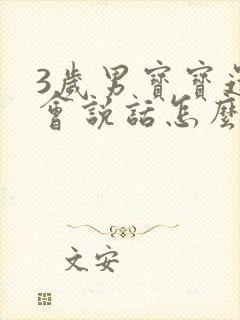 3歲男寶寶
會說話怎麼
文安